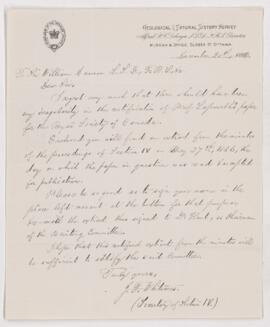 GEOLOGICAL & NATURAL HISTORY SURVEY
Alfred R.C. Selwyn, LL.D., F.R.S., Director
MUSEUM & OFFICE, SUSSEX ST. OTTAWA
188
To Sir William Dawson L.L.D., F.R.S. &c
Dear Sir,
I regret very much that there should have been
any irregularity in the certification of Prof. paper
for the Royal Society of Canada.
Enclosed you will find an extract from the minutes
of the proceedings of Section IV on May 27th, 1886, the
day on which the paper in question was read & accepted
for publication.
Please be so good as to sign your name in the
place left vacant at the bottom for that purpose,
& the extract thus signed to Dr. as chairman
of the Committee.
I hope that this certified extract from the minutes will
be sufficient to satisfy the Committee.
Truly yours,
J. F. Whiteaves
(Secretary of Section IV.)